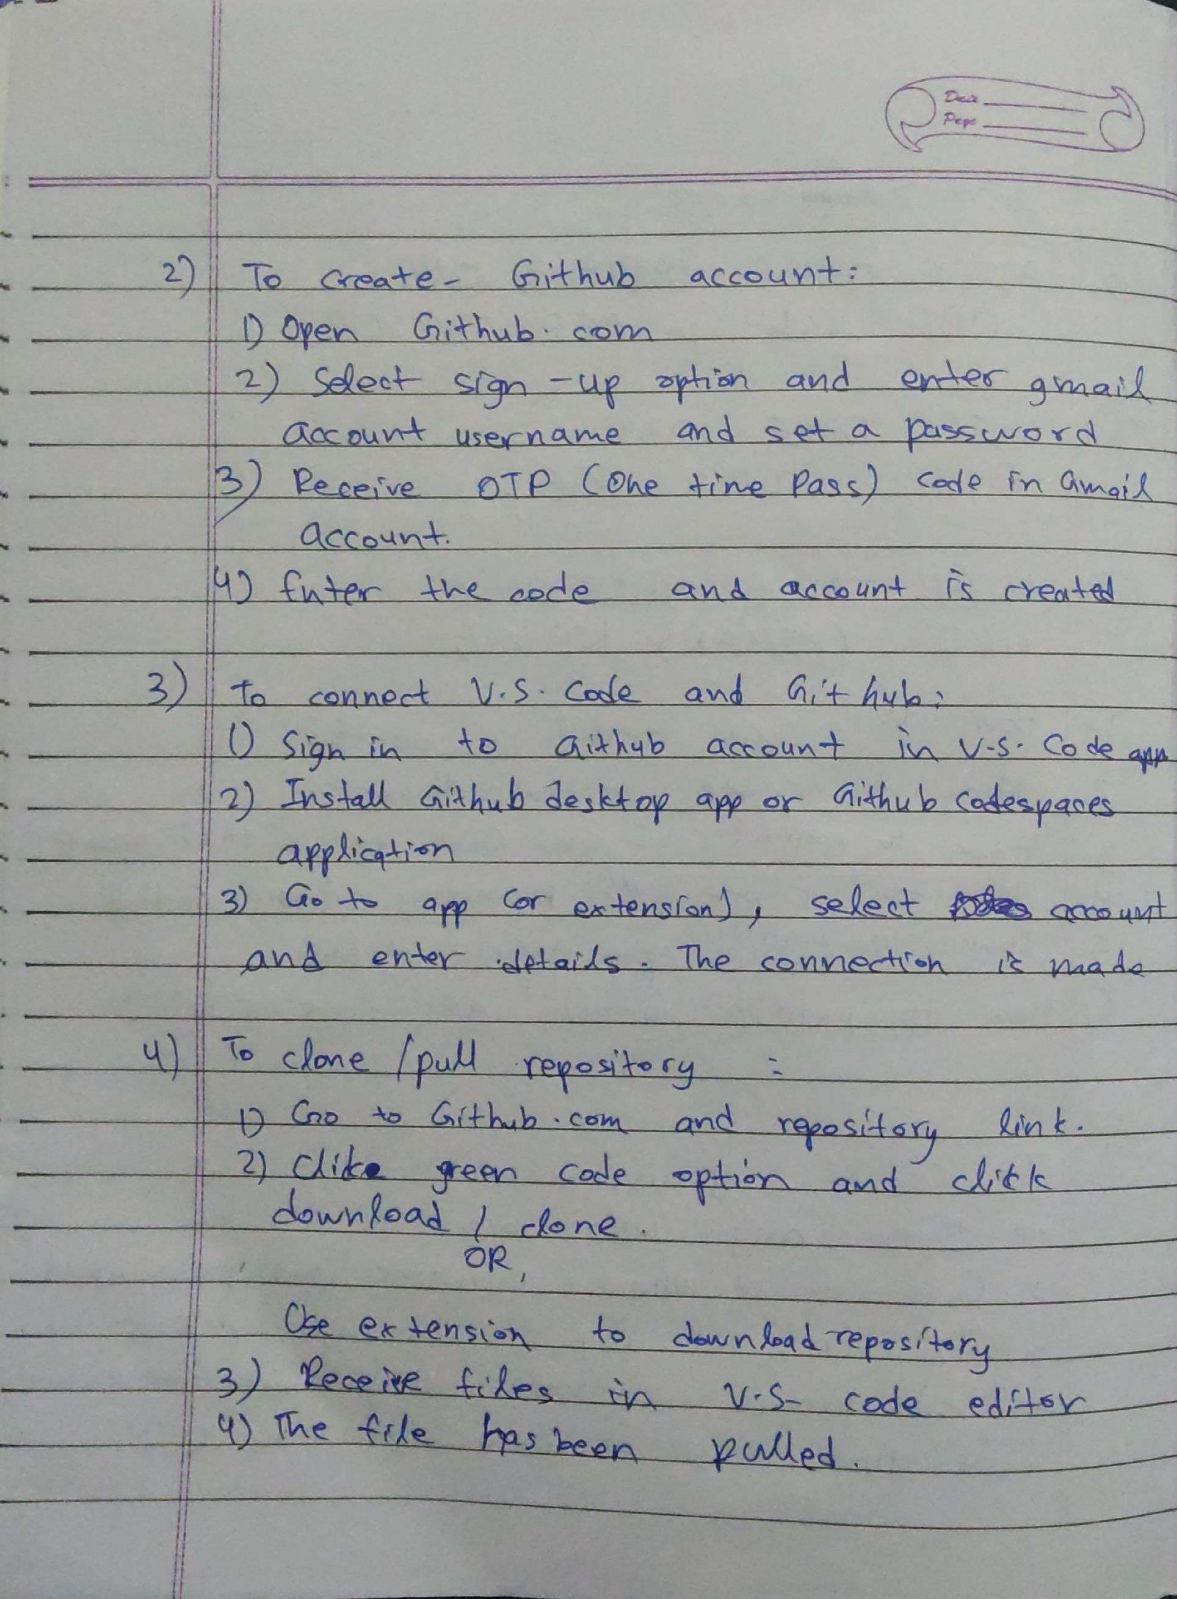 Date
Page
2) To create- Github account:
1) Open Github.com
2) Select sign-up option and enter gmail
account username and set a password
3) Receive OTP (One time Pass) code in Gmail
account.
4) Enter the code and account is created
3) To connect V.S. Code and Github:
1) Sign in to Github account in V.S. Code app
2) Install Github desktop app or Github codespaces
application
3) Go to app (or extension), select account
and enter details. The connection is made
4) To clone/pull repository :
1) Go to Github.com and repository link.
2) Clike green code option and click
download / clone.
OR,
Use extension to download repository
3) Receive files in V.S- code editor
4) The file has been pulled.